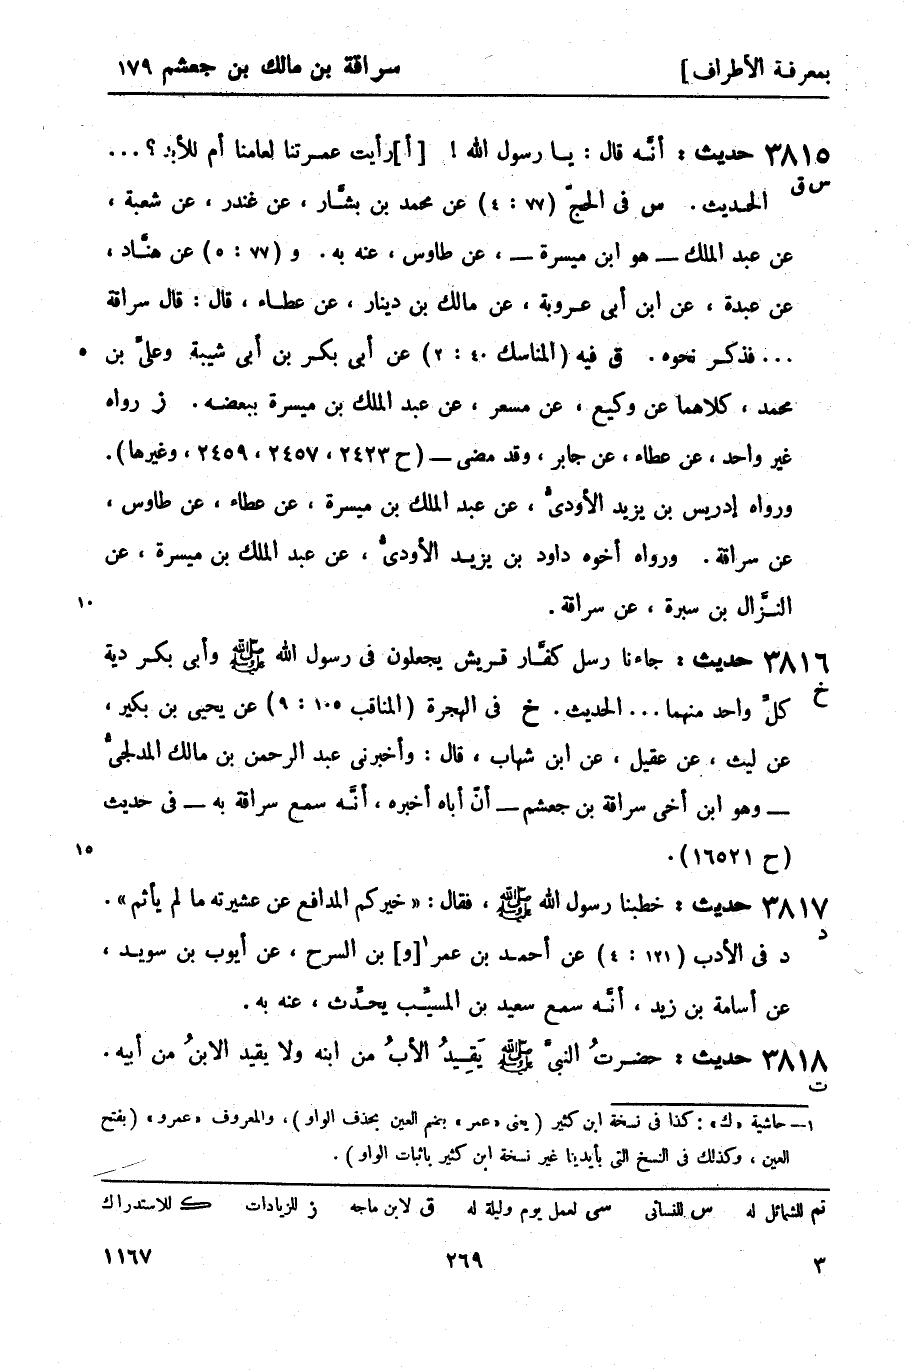 بمعرفة الأطراف] سراقة بن مالك بن جعشم ١٧٩
٣٨١٥ حديث : أنَّه قال : يا رسول الله ! [أ]رأيت عمرتنا لعامنا أم للأبد ؟...
س ق
الحديث. س فى الحجّ (٧٧ : ٤) عن محمد بن بشَّار ، عن غندر ، عن شعبة ،
عن عبد الملك ــ هو ابن ميسرة ــ ، عن طاوس ، عنه به. و (٧٧ : ٥) عن هنَّاد ،
عن عبدة ، عن ابن أبى عروبة ، عن مالك بن دينار ، عن عطاء ، قال : قال سراقة
... فذكر نحوه. ق فيه (المناسك ٤٠ : ٢) عن أبى بكر بن أبى شيبة وعلىّ بن ٥
محمد ، كلاهما عن وكيع ، عن مسعر ، عن عبد الملك بن ميسرة ببعضه. ز رواه
غير واحد ، عن عطاء ، عن جابر ، وقد مضى ــ (ح ٢٤٢٣ ، ٢٤٥٧ ، ٢٤٥٩ ، وغيرها).
ورواه إدريس بن يزيد الأودىُّ ، عن عبد الملك بن ميسرة ، عن عطاء ، عن طاوس ،
عن سراقة. ورواه أخوه داود بن يزيد الأودىُّ ، عن عبد الملك بن ميسرة ، عن
النزَّال بن سبرة ، عن سراقة. ١٠
٣٨١٦ حديث : جاءنا رسل كفَّار قريش يجعلون فى رسول الله ﷺ وأبى بكر دية
خ
كلّ واحد منهما... الحديث. خ فى الهجرة (المناقب ١٠٥ : ٩) عن يحيى بن بكير ،
عن ليث ، عن عقيل ، عن ابن شهاب ، قال : وأخبرنى عبد الرحمن بن مالك المدلجىُّ
ــ وهو ابن أخى سراقة بن جعشم ــ أنّ أباه أخبره ، أنَّه سمع سراقة به ــ فى حديث
(ح ١٦٥٢١). ١٥
٣٨١٧ حديث : خطبنا رسول الله ﷺ ، فقال : «خيركم المدافع عن عشيرته ما لم يأثم».
د
د فى الأدب (١٢١ : ٤) عن أحمد بن عمر١[و] بن السرح ، عن أيوب بن سويد ،
عن أسامة بن زيد ، أنَّه سمع سعيد بن المسيَّب يحدَّث ، عنه به.
٣٨١٨ حديث : حضرتُ النبىَّ ﷺ يَقِيدُ الأبُ من ابنه ولا يقيد الابنُ من أبيه.
ت
١ــ حاشية «ك» : كذا فى نسخة ابن كثير (يعنى «عمر» بضم العين بحذف الواو) ، والمعروف «عمرو» (بفتح
العين ، وكذلك فى النسخ التى بأيدينا غير نسخة ابن كثير باثبات الواو).
تم للشمائل له س للنسائى سى لعمل يوم وليلة له ق لابن ماجه ز للزيادات ك للاستدراك
٣ ٢٦٩ ١١٦٧